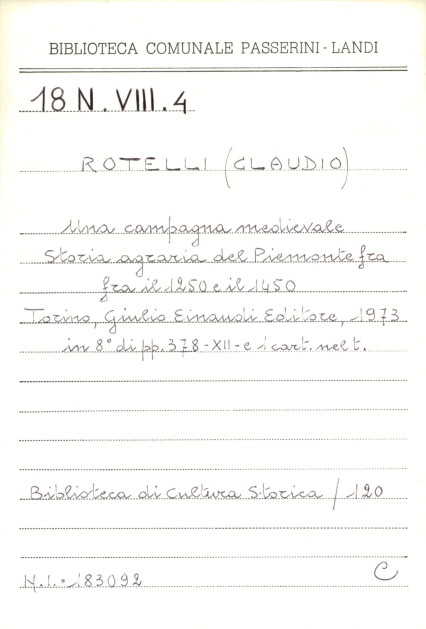 BIBLIOTECA COMUNALE PASSERINI - LANDI
18 N. VIII. 4
ROTELLI (CLAUDIO)
Una campagna medievale
Storia agraria del Piemonte fra
fra il 1250 e il 1450
Torino, Giulio Einaudi Editore, 1973
in 8° di pp. 378 - XII - e 1 cart. nel t.
Biblioteca di Cultura Storica / 120
N.I. 183092
C